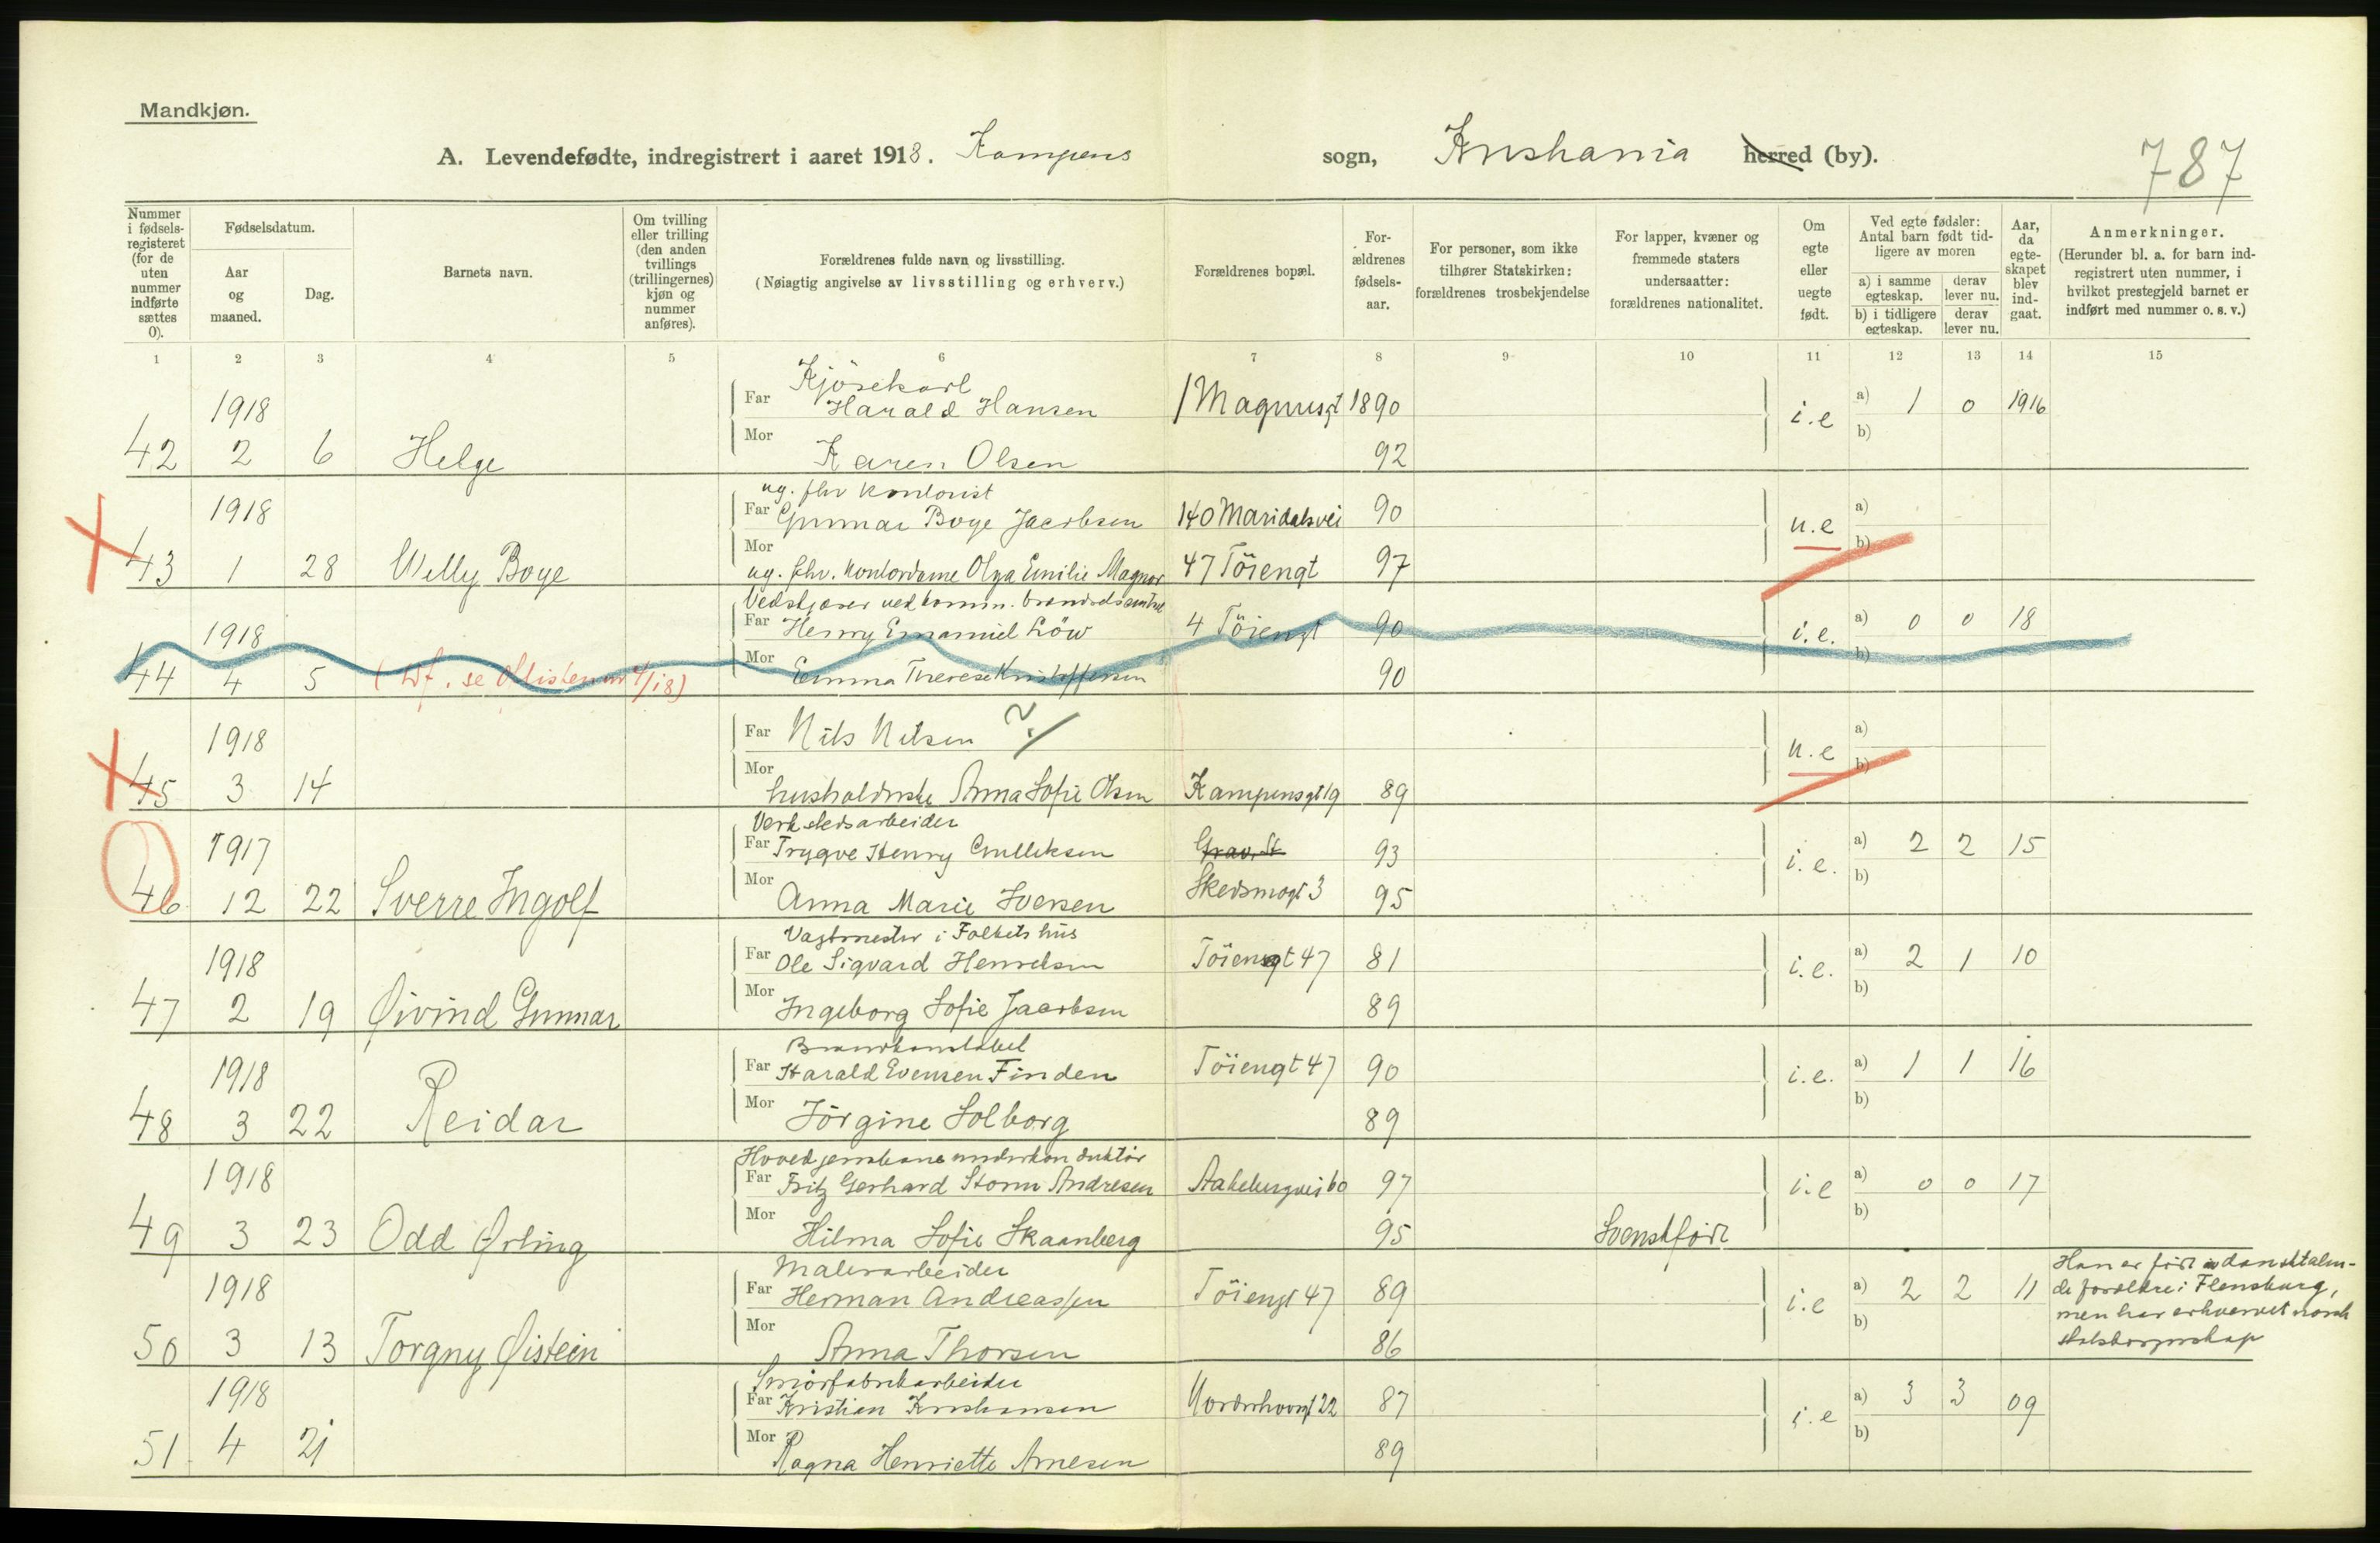 Mandkjøn.
A. Levendefødte, indregistrert i aaret 1918. Kampens sogn, Kristiania herred (by).
787
Nummer i fødsels-registeret (for de uten nummer indførte sættes 0).
Fødselsdatum.
Aar og maaned.
Dag.
Barnets navn.
Om tvilling eller trilling (den anden tvillings (trillingernes) kjøn og nummer anføres).
Forældrenes fulde navn og livsstilling.
(Nøiagtig angivelse av livsstilling og erhverv.)
Forældrenes bopæl.
For-ældrenes fødsels-aar.
For personer, som ikke tilhører Statskirken: forældrenes trosbekjendelse
For lapper, kvæner og fremmede staters undersaatter: forældrenes nationalitet.
Om egte eller uegte født.
Ved egte fødsler: Antal barn født tid-ligere av moren
a) i samme egteskap.
derav lever nu.
b) i tidligere egteskap.
derav lever nu.
Aar, da egte-skapet blev ind-gaat.
Anmerkninger.
(Herunder bl. a. for barn ind-registrert uten nummer, i hvilket prestegjeld barnet er indført med nummer o. s. v.)
1 2 3 4 5 6 7 8 9 10 11 12 13 14 15
Kjörekarl
1918 Far Harald Hansen 1 Magnusgt 1890 i.e a) 1 0 1916
42 2 6 Helge Mor Karen Olsen 92 b)
ug. fhv kontorist
1918 Far Gunnar Boye Jacobsen 140 Maridalsvei 90 u.e a)
43 1 28 Willy Boye Mor ug. fhv. kontordame Olga Emilie Magnor 47 Töiengt 97 b)
Vedskjærer ved komm. brændselscentral
1918 Far Henry Emanuel Löw 4 Töiengt 90 i.e. a) 0 0 18
44 4 5 (Df. se Df listen nr 4/18) Mor Emma Therese Kristoffersen 90 b)
1918 Far Nils Nilsen ? u.e a)
45 3 14 Mor husholderske Anna Sofie Olsen Kampensgt 19 89 b)
Verkstedsarbeider
1917 Far Trygve Henry Gulliksen Grav. St 93 i.e. a) 2 2 15
46 12 22 Sverre Ingolf Mor Anna Marie Iversen Skedsmogt 3 95 b)
Vagtmester i Folkets hus
1918 Far Ole Sigvard Henriksen Töiengt 47 81 i.e. a) 2 1 10
47 2 19 Øivind Gunnar Mor Ingeborg Sofie Jacobsen 89 b)
Brandkonstabel
1918 Far Harald Evensen Finden Töiengt 47 90 i.e. a) 1 1 16
48 3 22 Reidar Mor Jörgine Solborg 89 b)
Hovedjernbane underkonduktör
1918 Far Fritz Gerhard Storm Andresen Aakebergvei 60 97 i.e a) 0 0 17
49 3 23 Odd Ørling Mor Hilma Sofie Skaanberg 95 Svenskfödt b)
Malerarbeider
1918 Far Herman Andreassen Töiengt 47 89 i.e a) 2 2 11
50 3 13 Torgny Øistein Mor Anna Thorsen 86 b)
Han er född av dansktalen-
de forældre i Flensburg,
men har erhvervet norsk
statsborgerskap
Smörfabrikarbeider
1918 Far Kristian Kristiansen Norderhovgt 22 87 i.e a) 3 3 09
51 4 21 Mor Ragna Henriette Arnesen 89 b)